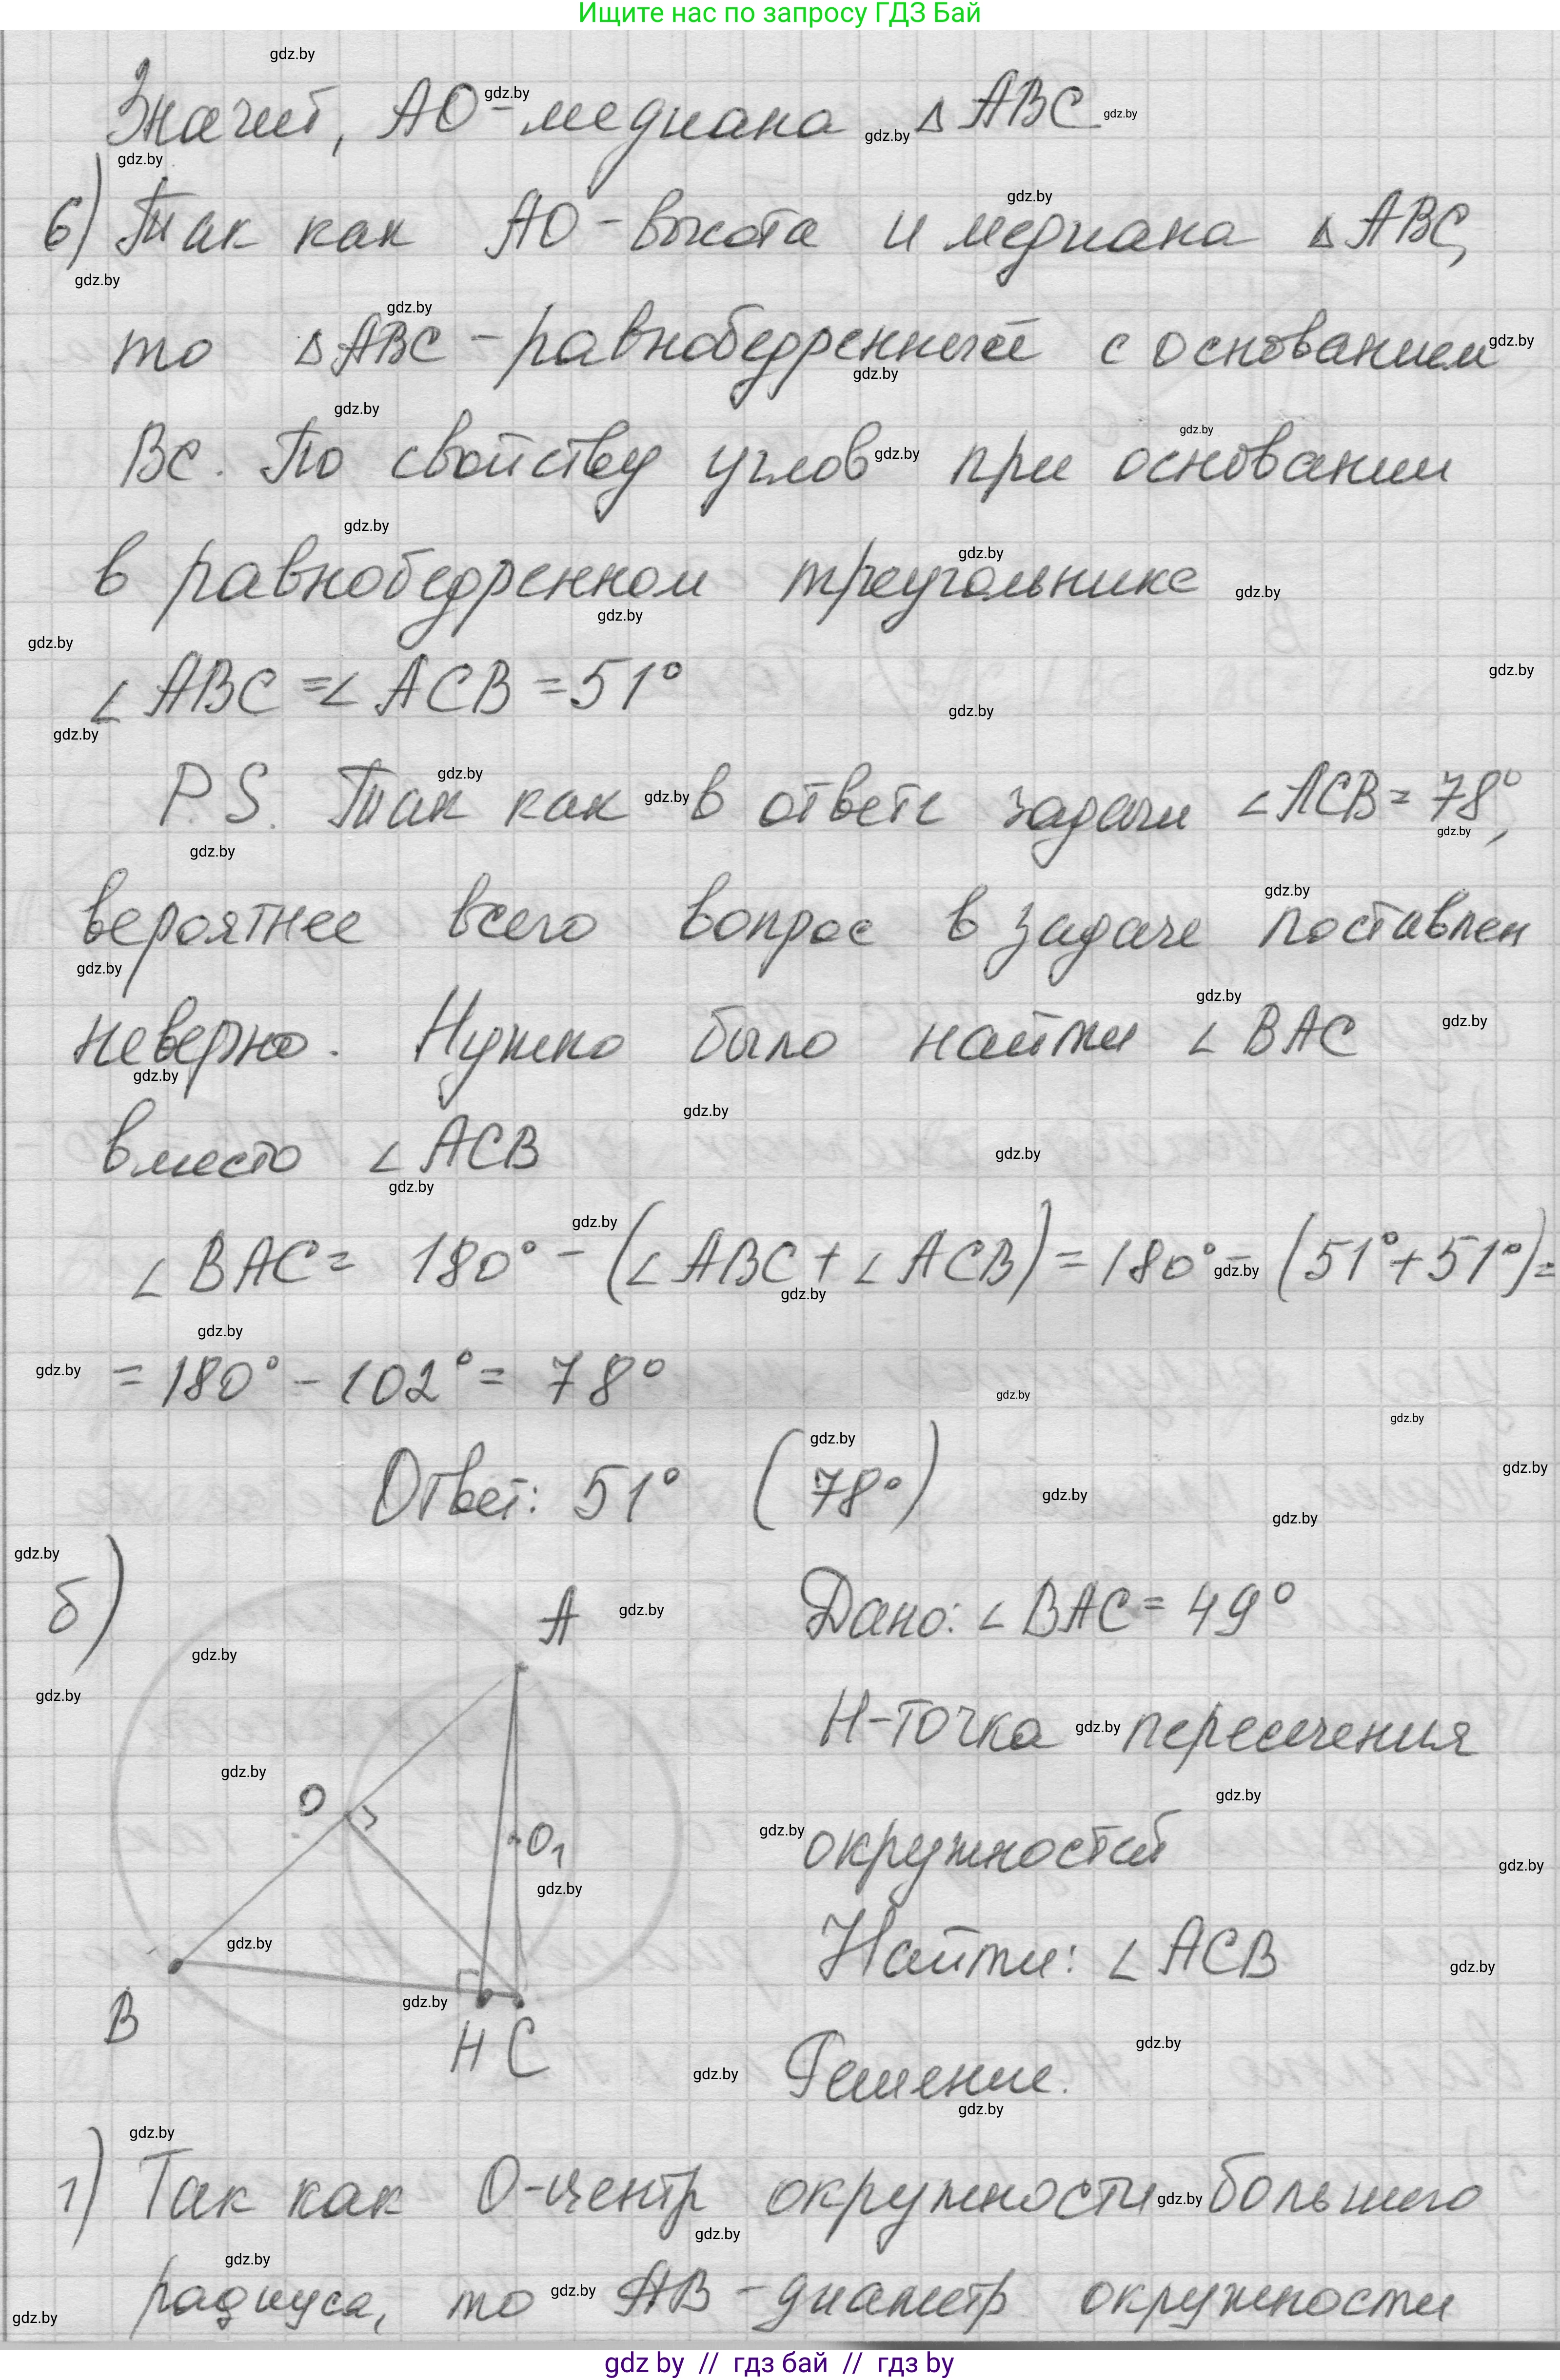 Ищите нас по запросу ГДЗ Бай
Значит, АО - медиана △ АВС
6) Так как АО - высота и медиана △ АВС,
то △ АВС - равнобедренный с основанием
ВС. По свойству углов при основании
в равнобедренном треугольнике
∠ АВС = ∠ АСВ = 51°
P.S. Так как в ответе задачи ∠АСВ = 78°,
вероятнее всего вопрос в задаче поставлен
неверно. Нужно было найти ∠ ВАС
вместо ∠ АСВ
∠ ВАС = 180° - (∠ АВС + ∠ АСВ) = 180° - (51° + 51°) =
= 180° - 102° = 78°
Ответ: 51° (78°)
б)
А
О
О₁
В
Н С
Дано: ∠ ВАС = 49°
Н - точка пересечения
окружностей
Найти: ∠ АСВ
Решение.
1) Так как О - центр окружности большего
радиуса, то АВ - диаметр окружности
gdz by // гдз бай // гдз by